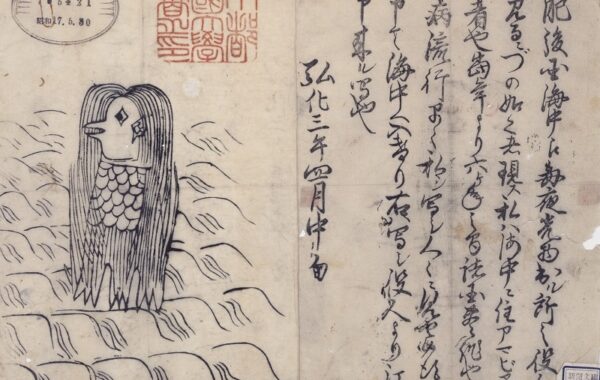 肥後国海中え毎夜光物出ル所之役
見るニづの如く者現ス私ハ海中ニ住アマビ
者也当年より六ヶ年之間諸国豊作也
病流行早々私ヲ写シ人々ニ見せ候
申て海中へ入けり右写シ役人より江
申来ル写也
弘化三年四月中旬
昭和17.5.30